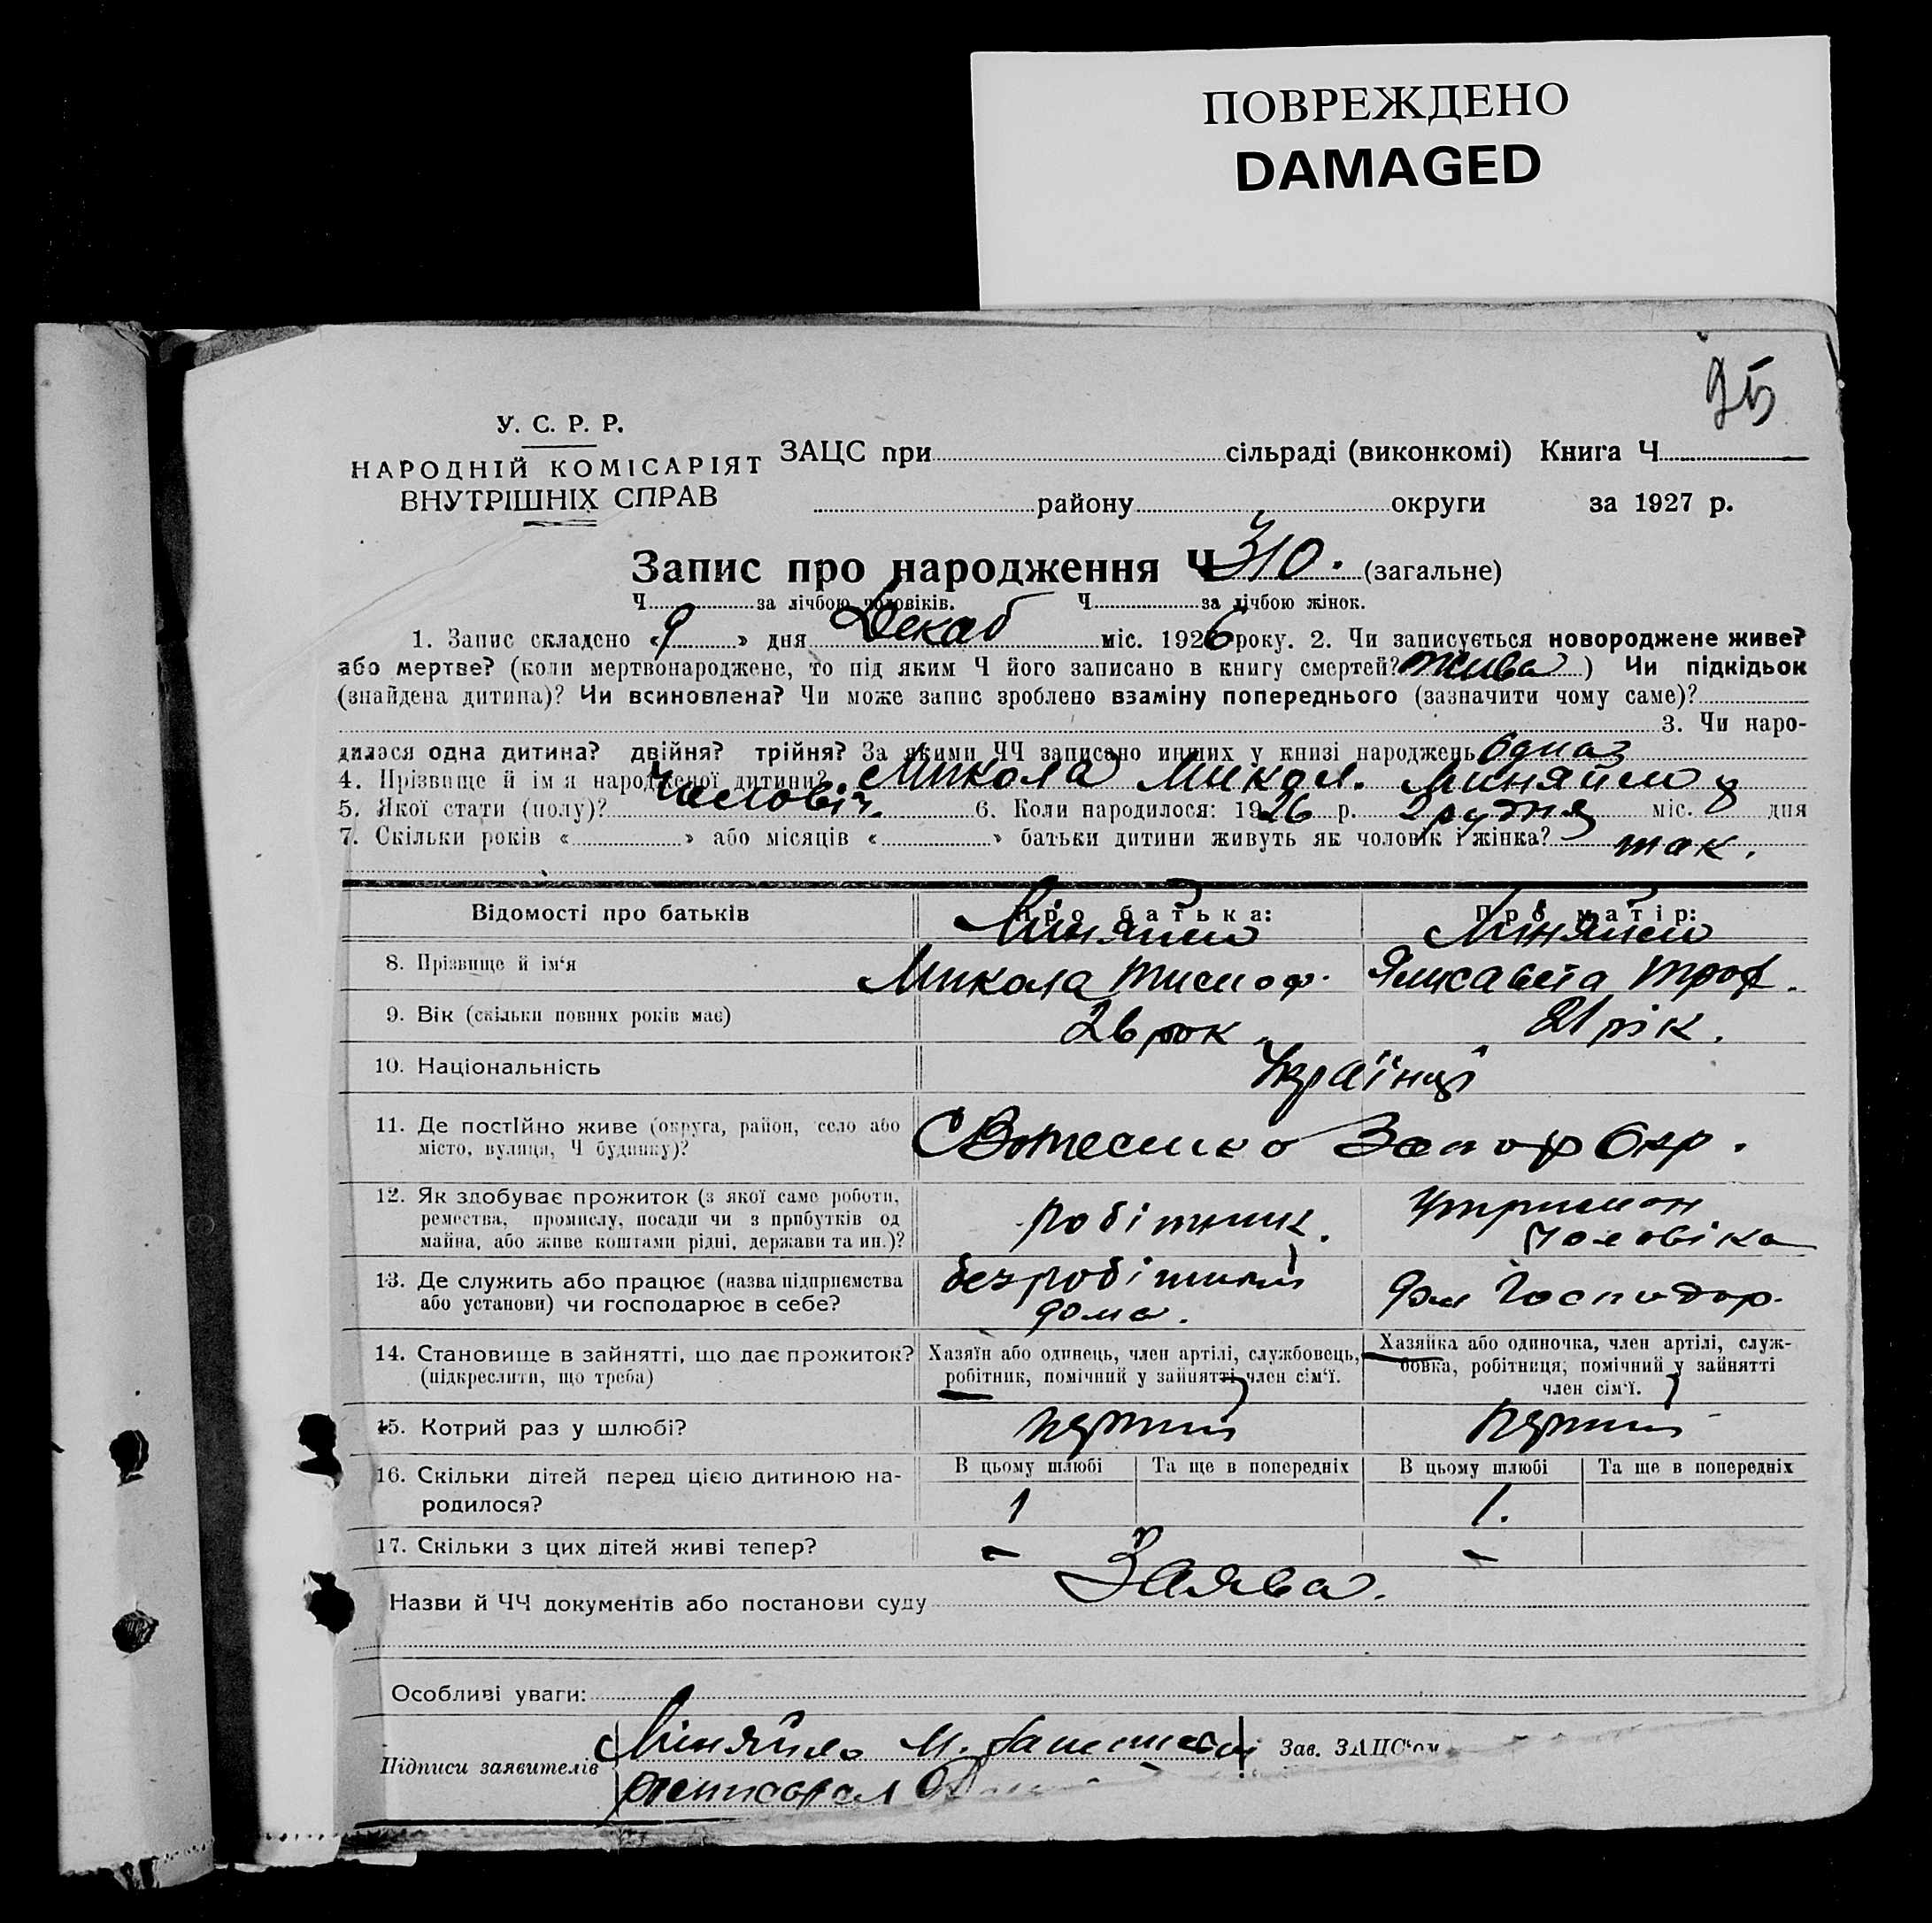 ПОВРЕЖДЕНО
DAMAGED
95
У. С. Р. Р.
НАРОДНІЙ КОМІСАРІЯТ
ВНУТРІШНІХ СПРАВ
ЗАЦС при сільраді (виконкомі) Книга Ч
району округи за 1927 р.
Запис про народження Ч 310. (загальне)
Ч за лічбою чоловіків. Ч за лічбою жінок.
1. Запис складено «9» дня Декаб міс. 1926 року. 2. Чи записується новороджене живе?
або мертве? (коли мертвонароджене, то під яким Ч його записано в книгу смертей? жива) Чи підкідьок
(знайдена дитина)? Чи всиновлена? Чи може запис зроблено взаміну попереднього (зазначити чому саме)?
3. Чи наро-
дилася одна дитина? двійня? трійня? За якими ЧЧ записано инших у книзі народжень одна
4. Прізвище й ім'я народженої дитини? Микола Микол. Миняйло
5. Якої стати (полу)? Чоловіч. 6. Коли народилося: 1926 р. Грудня міс. 8 дня
7. Скільки років « » або місяців « » батьки дитини живуть як чоловік і жінка? так.
Відомості про батьків Про батька: Про матір:
Миняйло Міняйло
8. Прізвище й ім'я Микола Тимоф. Єлисавета Троф.
9. Вік (скільки повних років має) 26 рок. 21 рік.
10. Національність Українці
11. Де постійно живе (округа, район, село або
місто, вулиця, Ч будинку)?
Запор Окр.
12. Як здобуває прожиток (з якої саме роботи,
ремества, промислу, посади чи з прибутків од
майна, або живе коштами рідні, держави та ин.)?
робітник. утриман
чоловіка
13. Де служить або працює (назва підприємства
або установи) чи господарює в себе?
безробітний
дома. дом Господар.
14. Становище в зайнятті, що дає прожиток?
(підкреслити, що треба)
Хазяїн або одинець, член артілі, службовець,
робітник, помічний у зайнятті член сім'ї.
Хазяйка або одиночка, член артілі, служ-
бовка, робітниця, помічний у зайнятті
член сім'ї.
15. Котрий раз у шлюбі? перший перший
16. Скільки дітей перед цією дитиною на-
родилося?
В цьому шлюбі Та ще в попередніх В цьому шлюбі Та ще в попередніх
1 1.
17. Скільки з цих дітей живі тепер? – –
Назви й ЧЧ документів або постанови суду Заява.
Особливі уваги:
Підписи заявителів Міняйло М.
Зав. ЗАЦС'ом